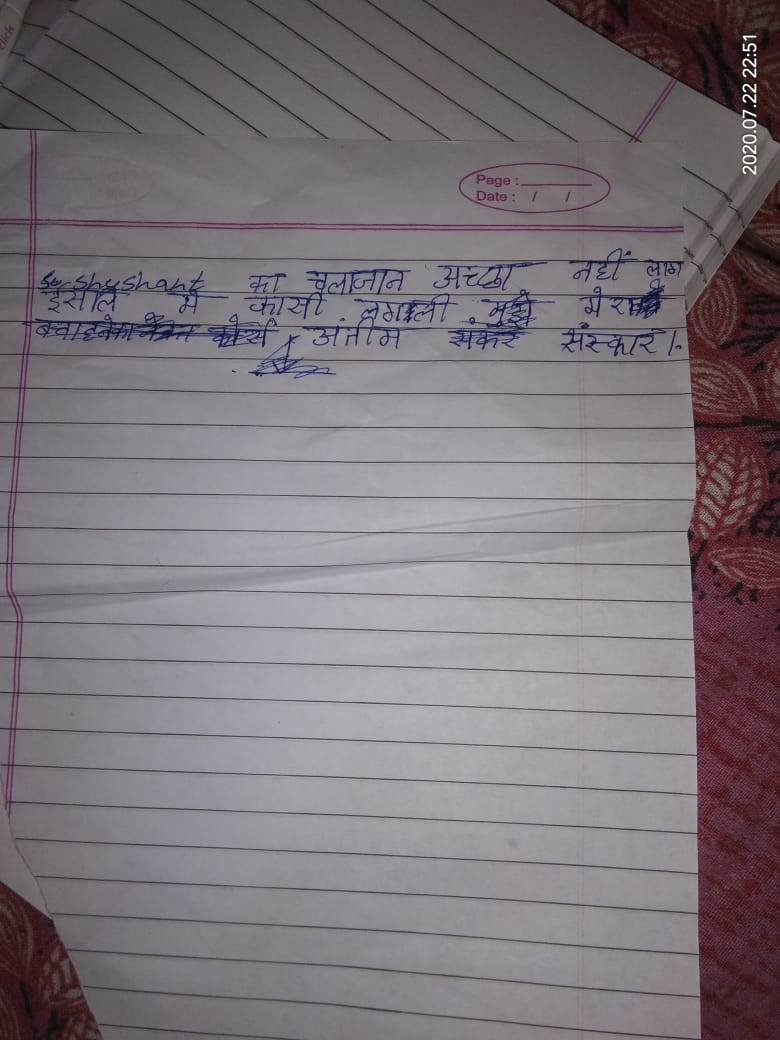 2020.07.22 22:51
Page :
Date : / /
Shushant का चलाजान अच्छा नहीं लाग
इसलि मे फासी लगाली मुझे मेरा
अंतीम संस्कार ।.